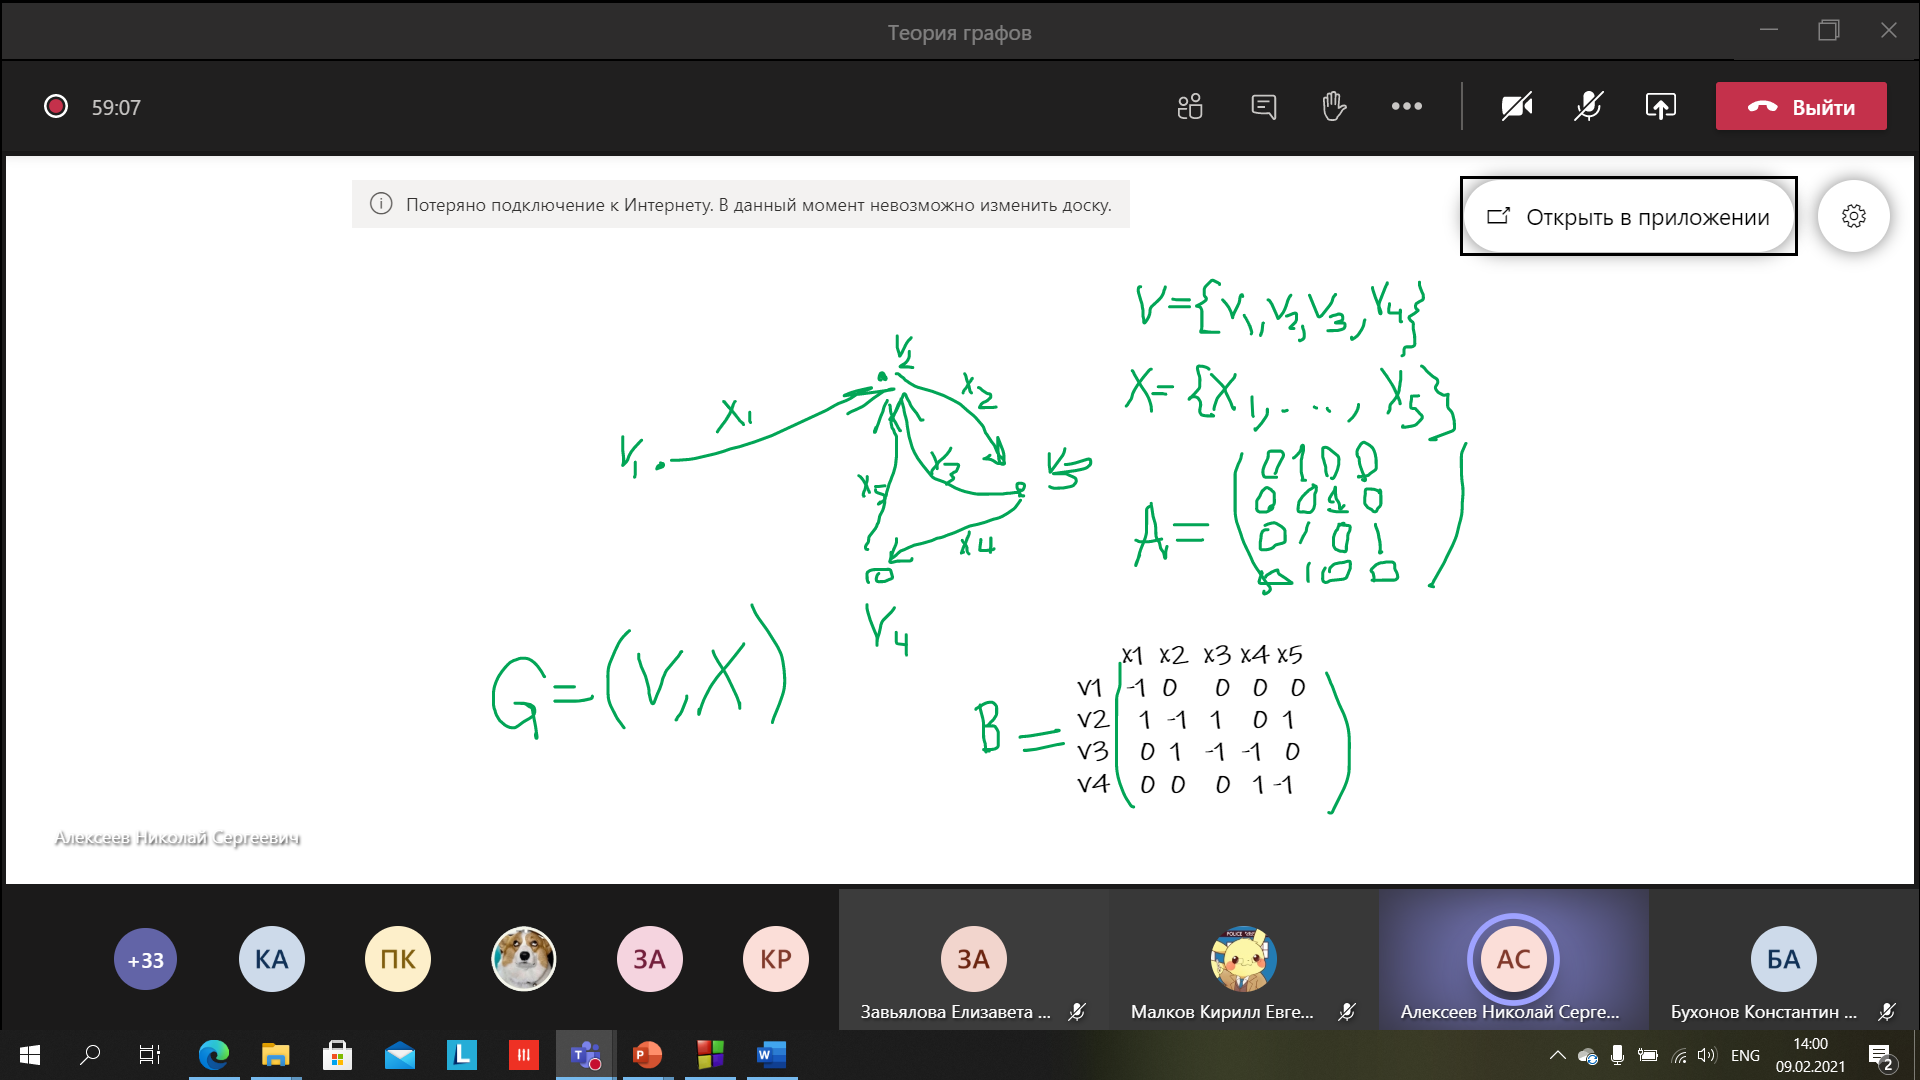 Теория графов
59:07
Выйти
Потеряно подключение к Интернету. В данный момент невозможно изменить доску.
Открыть в приложении
V={V1,V2,V3,V4}
X={X1,...,X5}
V2
X2
X1
V1
X3
V3
X5
X4
V4
A=
0 1 0 0
0 0 1 0
0 1 0 1
0 1 0 0
G=(V,X)
B=
x1 x2 x3 x4 x5
v1 -1 0 0 0 0
v2 1 -1 1 0 1
v3 0 1 -1 -1 0
v4 0 0 0 1 -1
Алексеев Николай Сергеевич
+33
КА
ПК
ЗА
КР
ЗА
АС
БА
Завьялова Елизавета ...
Малков Кирилл Евге...
Алексеев Николай Серге...
Бухонов Константин ...
ENG
14:00
09.02.2021
2